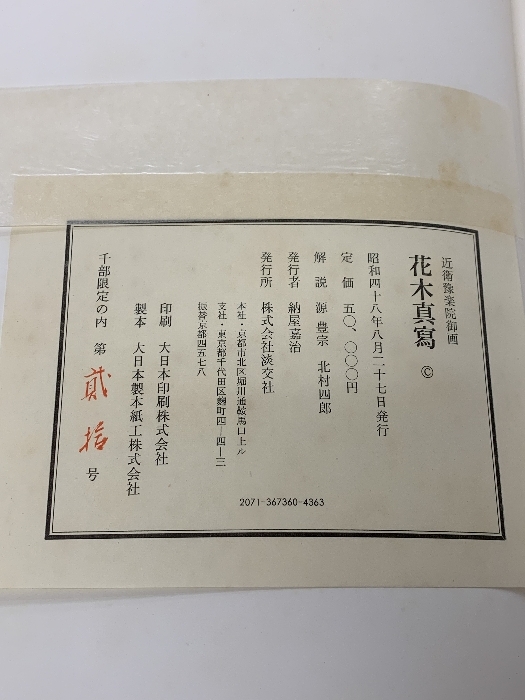 近衛豫楽院御画
花木真寫 ©
昭和四十八年八月二十七日発行
定価 五〇、〇〇〇円
解説 源豊宗 北村四郎
発行者 納屋嘉治
発行所 株式会社淡交社
本社・京都市北区堀川通鞍馬口上ル
支社・東京都千代田区麹町四ー四ー三
振替京都四五七八
印刷 大日本印刷株式会社
製本 大日本製本紙工株式会社
千部限定の内 第 貳拾 号
2071-367360-4363